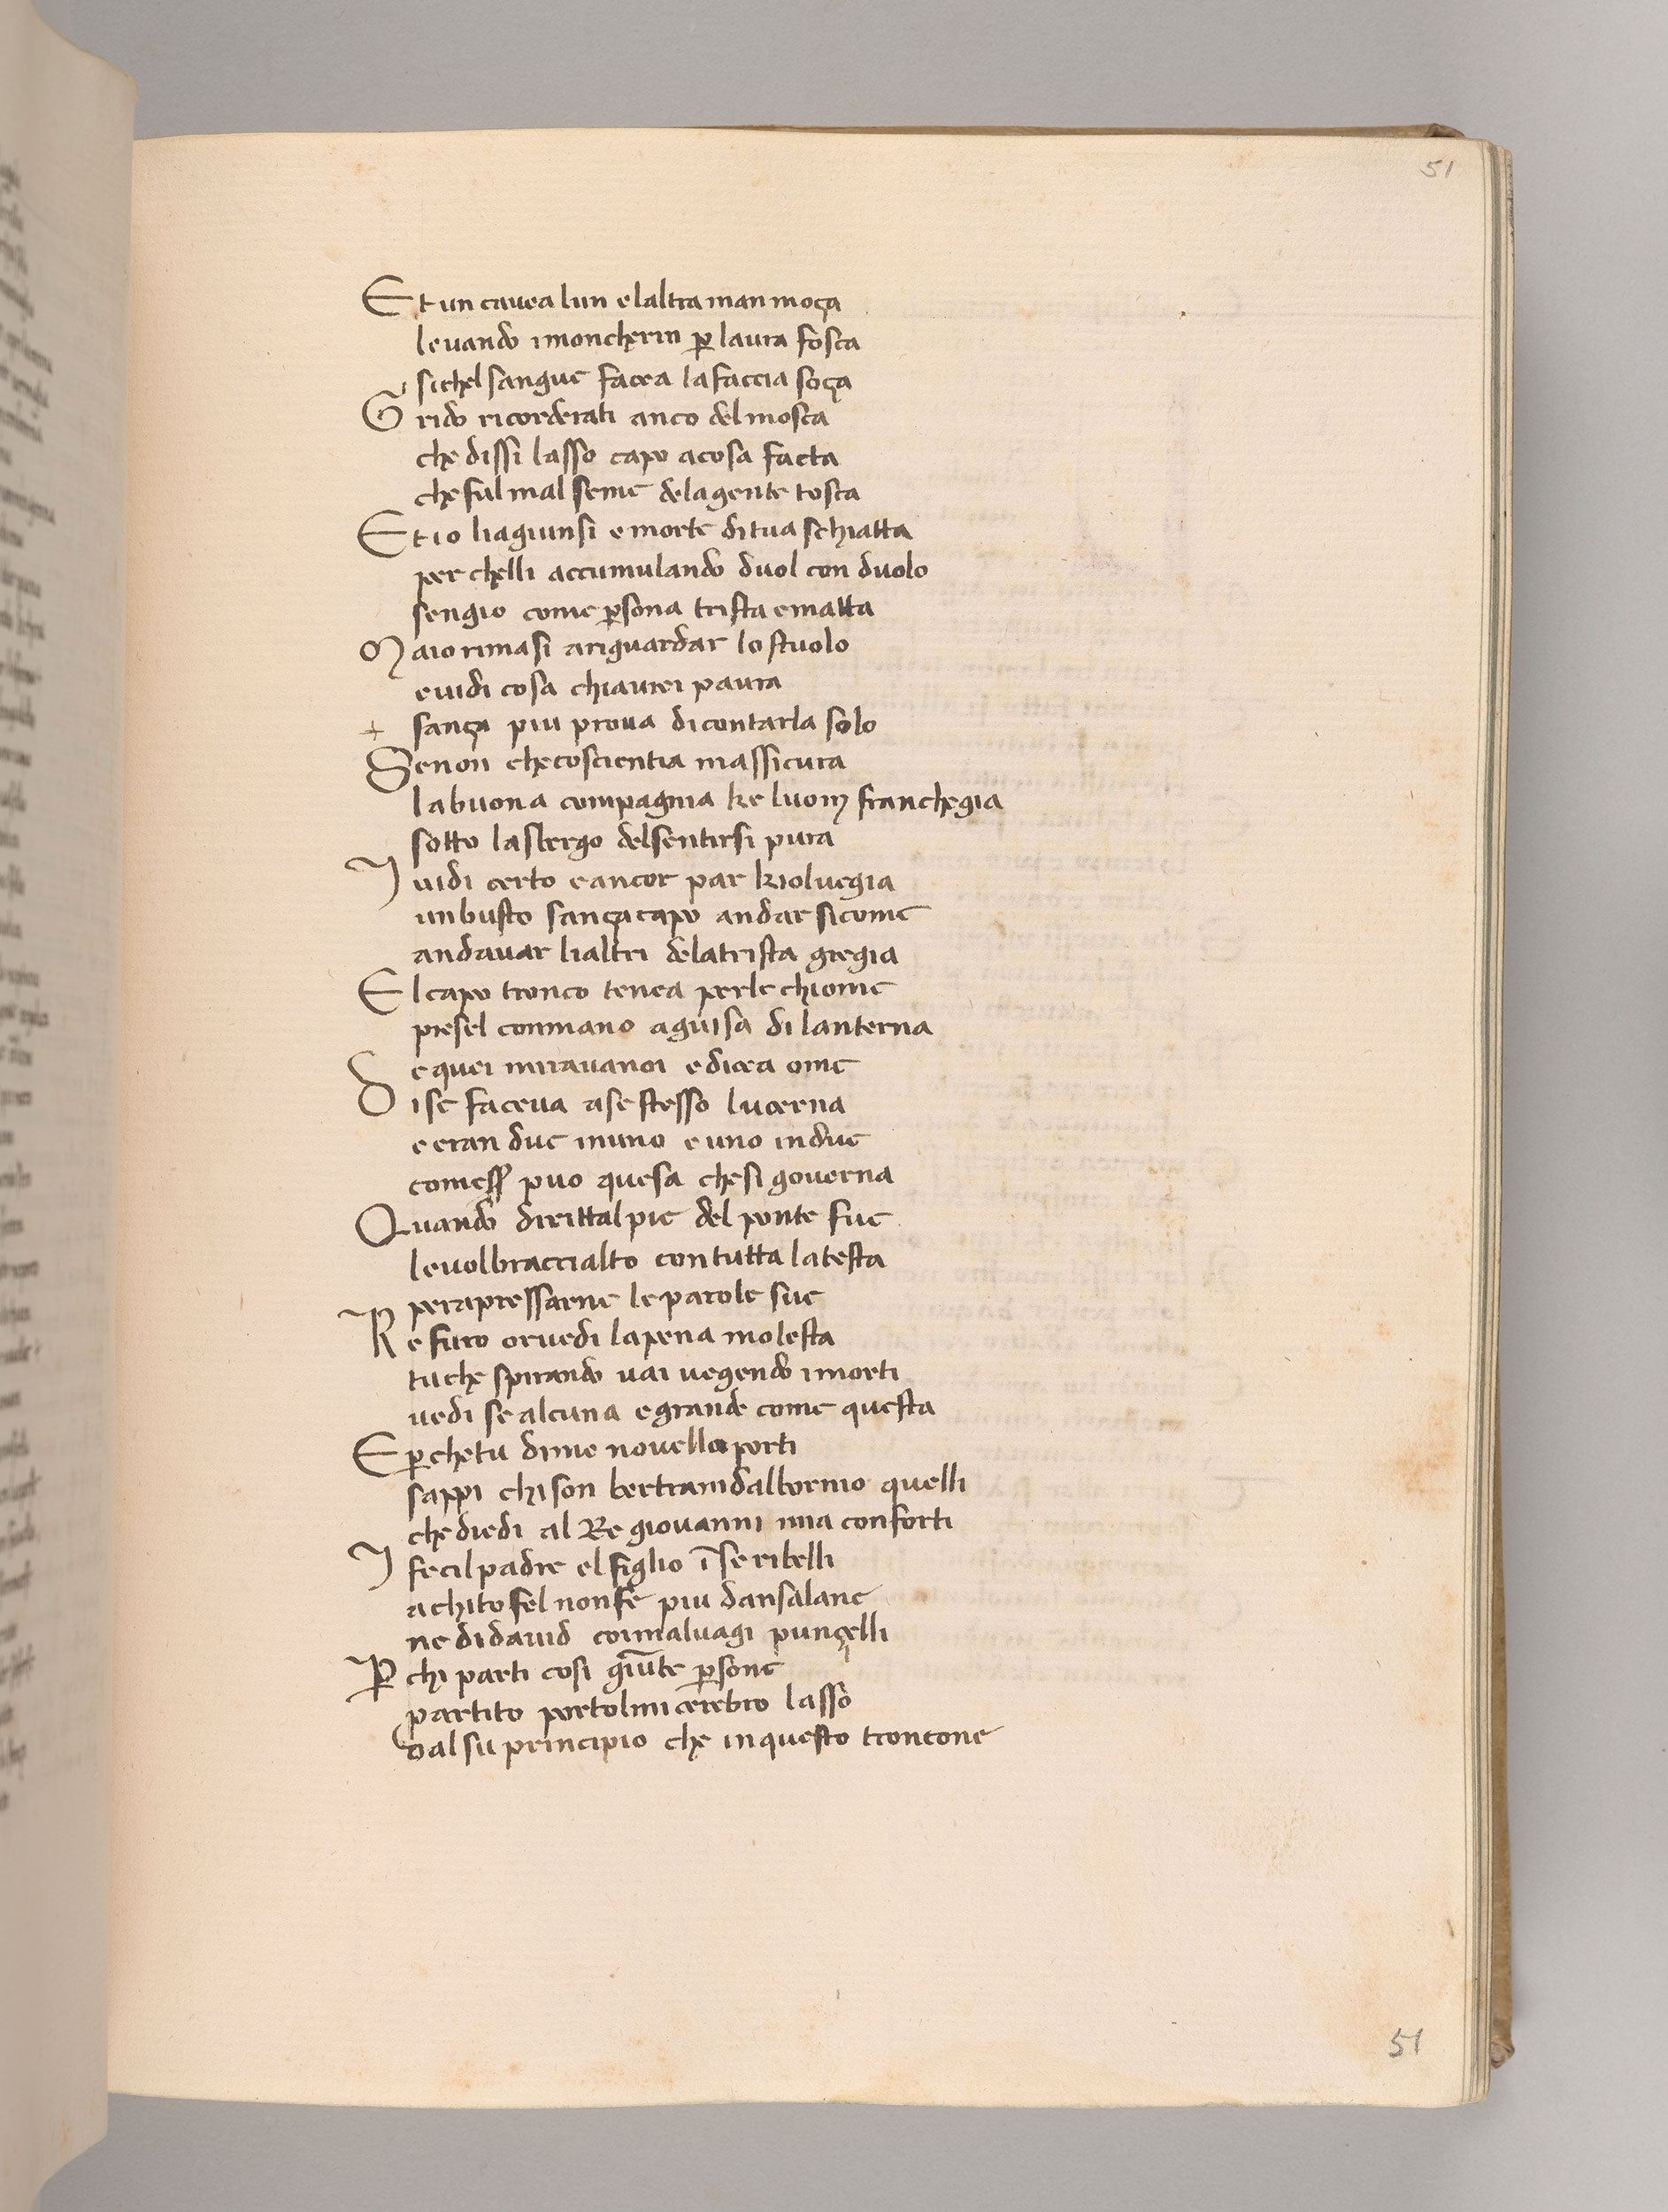 51
Et un cavea lun elaltra man moça
levando imoncherin p laura fosca
sichel sangue facea lafaccia soça
Grido ricorderati anco del mosca
che dissi lasso capo acosa facta
che ful mal seme delagente tosca
Et io liagiunsi emorte ditua schiatta
per chelli accumulando duol con duolo
sengio come psona trista ematta
Maio rimasi ariguardar lo stuolo
evidi cosa chiavrei paura
+ sança piu prova dicontarla solo
Senon che coscientia massicura
labuona compagnia ke luom franchegia
sotto lasbergo delsentirsi pura
I vidi certo eancor par kiolvegia
unbusto sança capo andar sicome
andavar lialtri delatrista gregia
El capo tronco tenea perle chiome
presel conmano aguisa di lanterna
e quei miravanoi edicea ome
Di se faceva ase stesso lucerna
e eran due inuno euno indue
comess puo quesa chesi governa
Quando dirittal pie del ponte fue
levolbraccialto contutta latesta
perapressarne le parole sue
Re furo orvedi lapena molesta
tuche spirando vai vegendo imorti
vedi se alcuna egrande come questa
E pchetu dime novella porti
sappi chison bertramdalbornio quelli
che diedi al Re giovanni mia conforti
I fecilpadre elfiglio ī se ribelli
achitofel nonfe piu dansalane
ne didavid coimalvagi punçelli
P chi parti cosi giūte psone
partito portolmi cerebro lasso
dal su principio che inquesto troncone
51